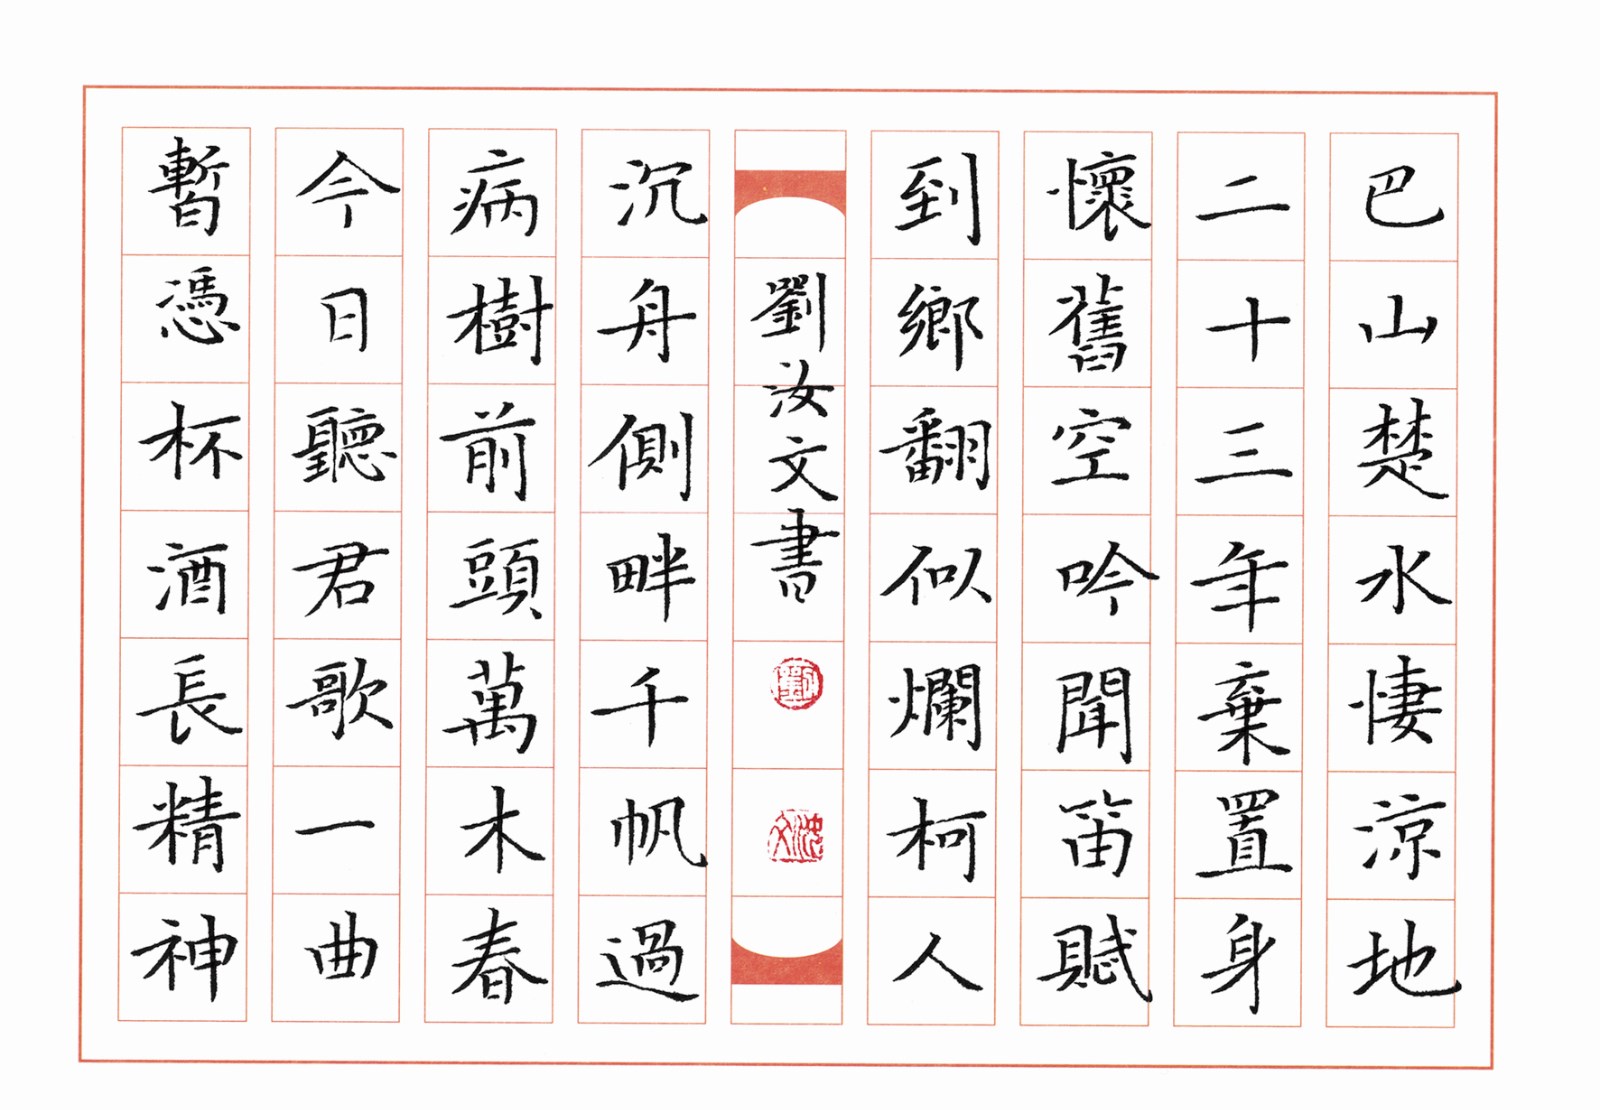 巴山楚水悽涼地
二十三年棄置身
懷舊空吟聞笛賦
到鄉翻似爛柯人
劉汝文書
沉舟側畔千帆過
病樹前頭萬木春
今日聽君歌一曲
暫憑杯酒長精神